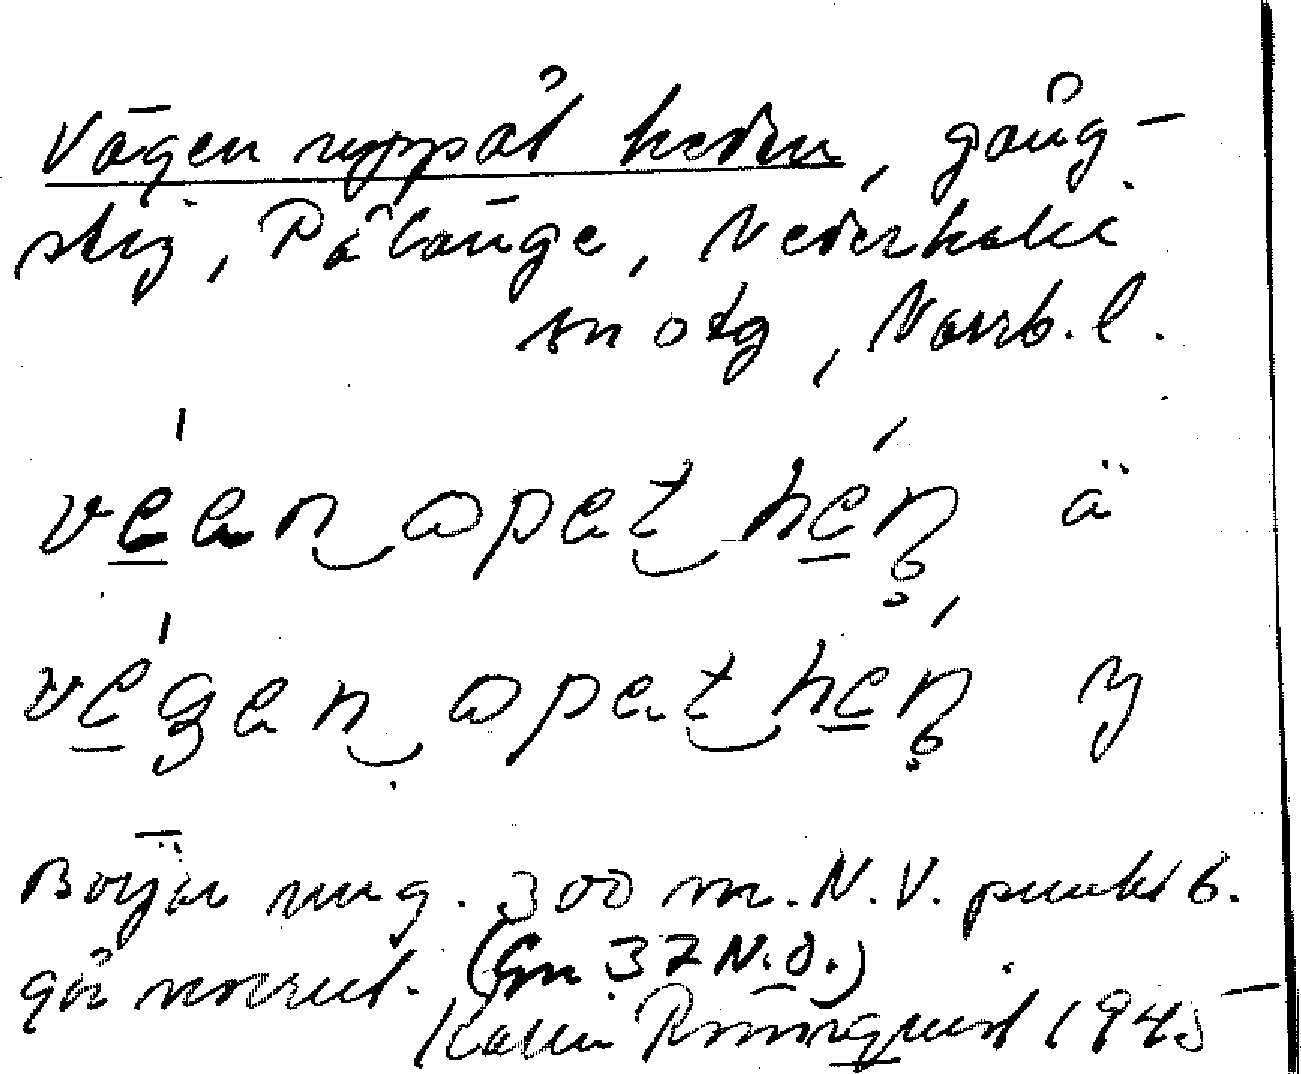 Vägen uppåt heden, gång-
stig, Pålänge, Nederkalix
sn otg, Norrb. l.
véen opet hén ä
végen opet hén y
Börjar ung. 300 m. N.V. punkt 6.
går norrut. (Gm 37 N.Ö.)
Kallin Rönnqvist 1945